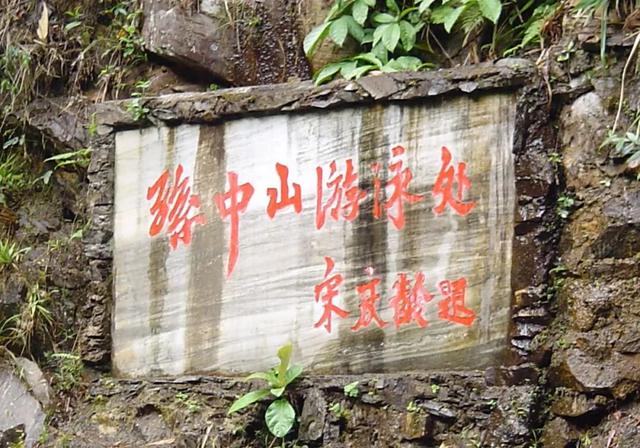 孙中山游泳处
宋庆龄题